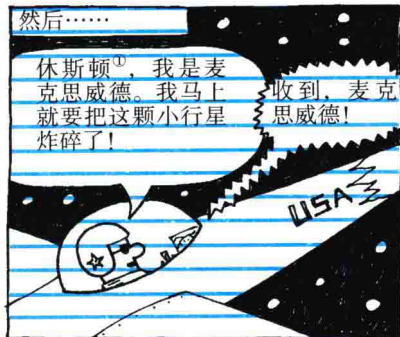 然后……
休斯顿①，我是麦
克思威德。我马上
就要把这颗小行星
炸碎了！
收到，麦克
思威德！
USA